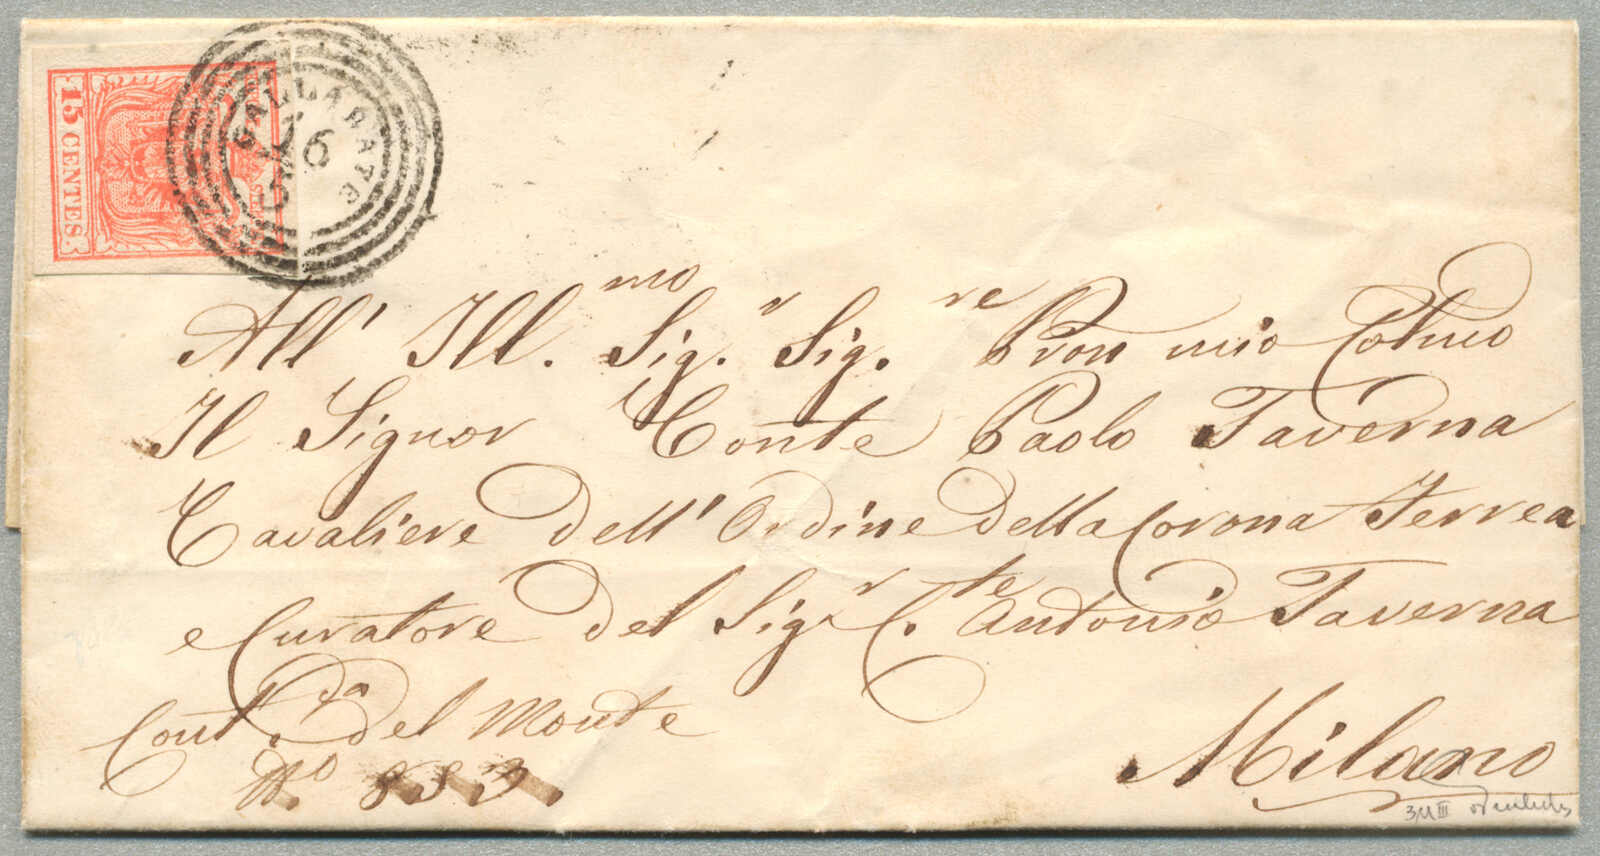 15 CENTES.
GALLARATE
6
All' Ill.mo Sig.r Sig.re Pron mio Colmo
Il Signor Conte Paolo Taverna
Cavaliere dell' Ordine della Corona Ferrea
e Curatore del Sigr C.te Antonio Taverna
Cont.da del Monte
Milano
No
3MIII